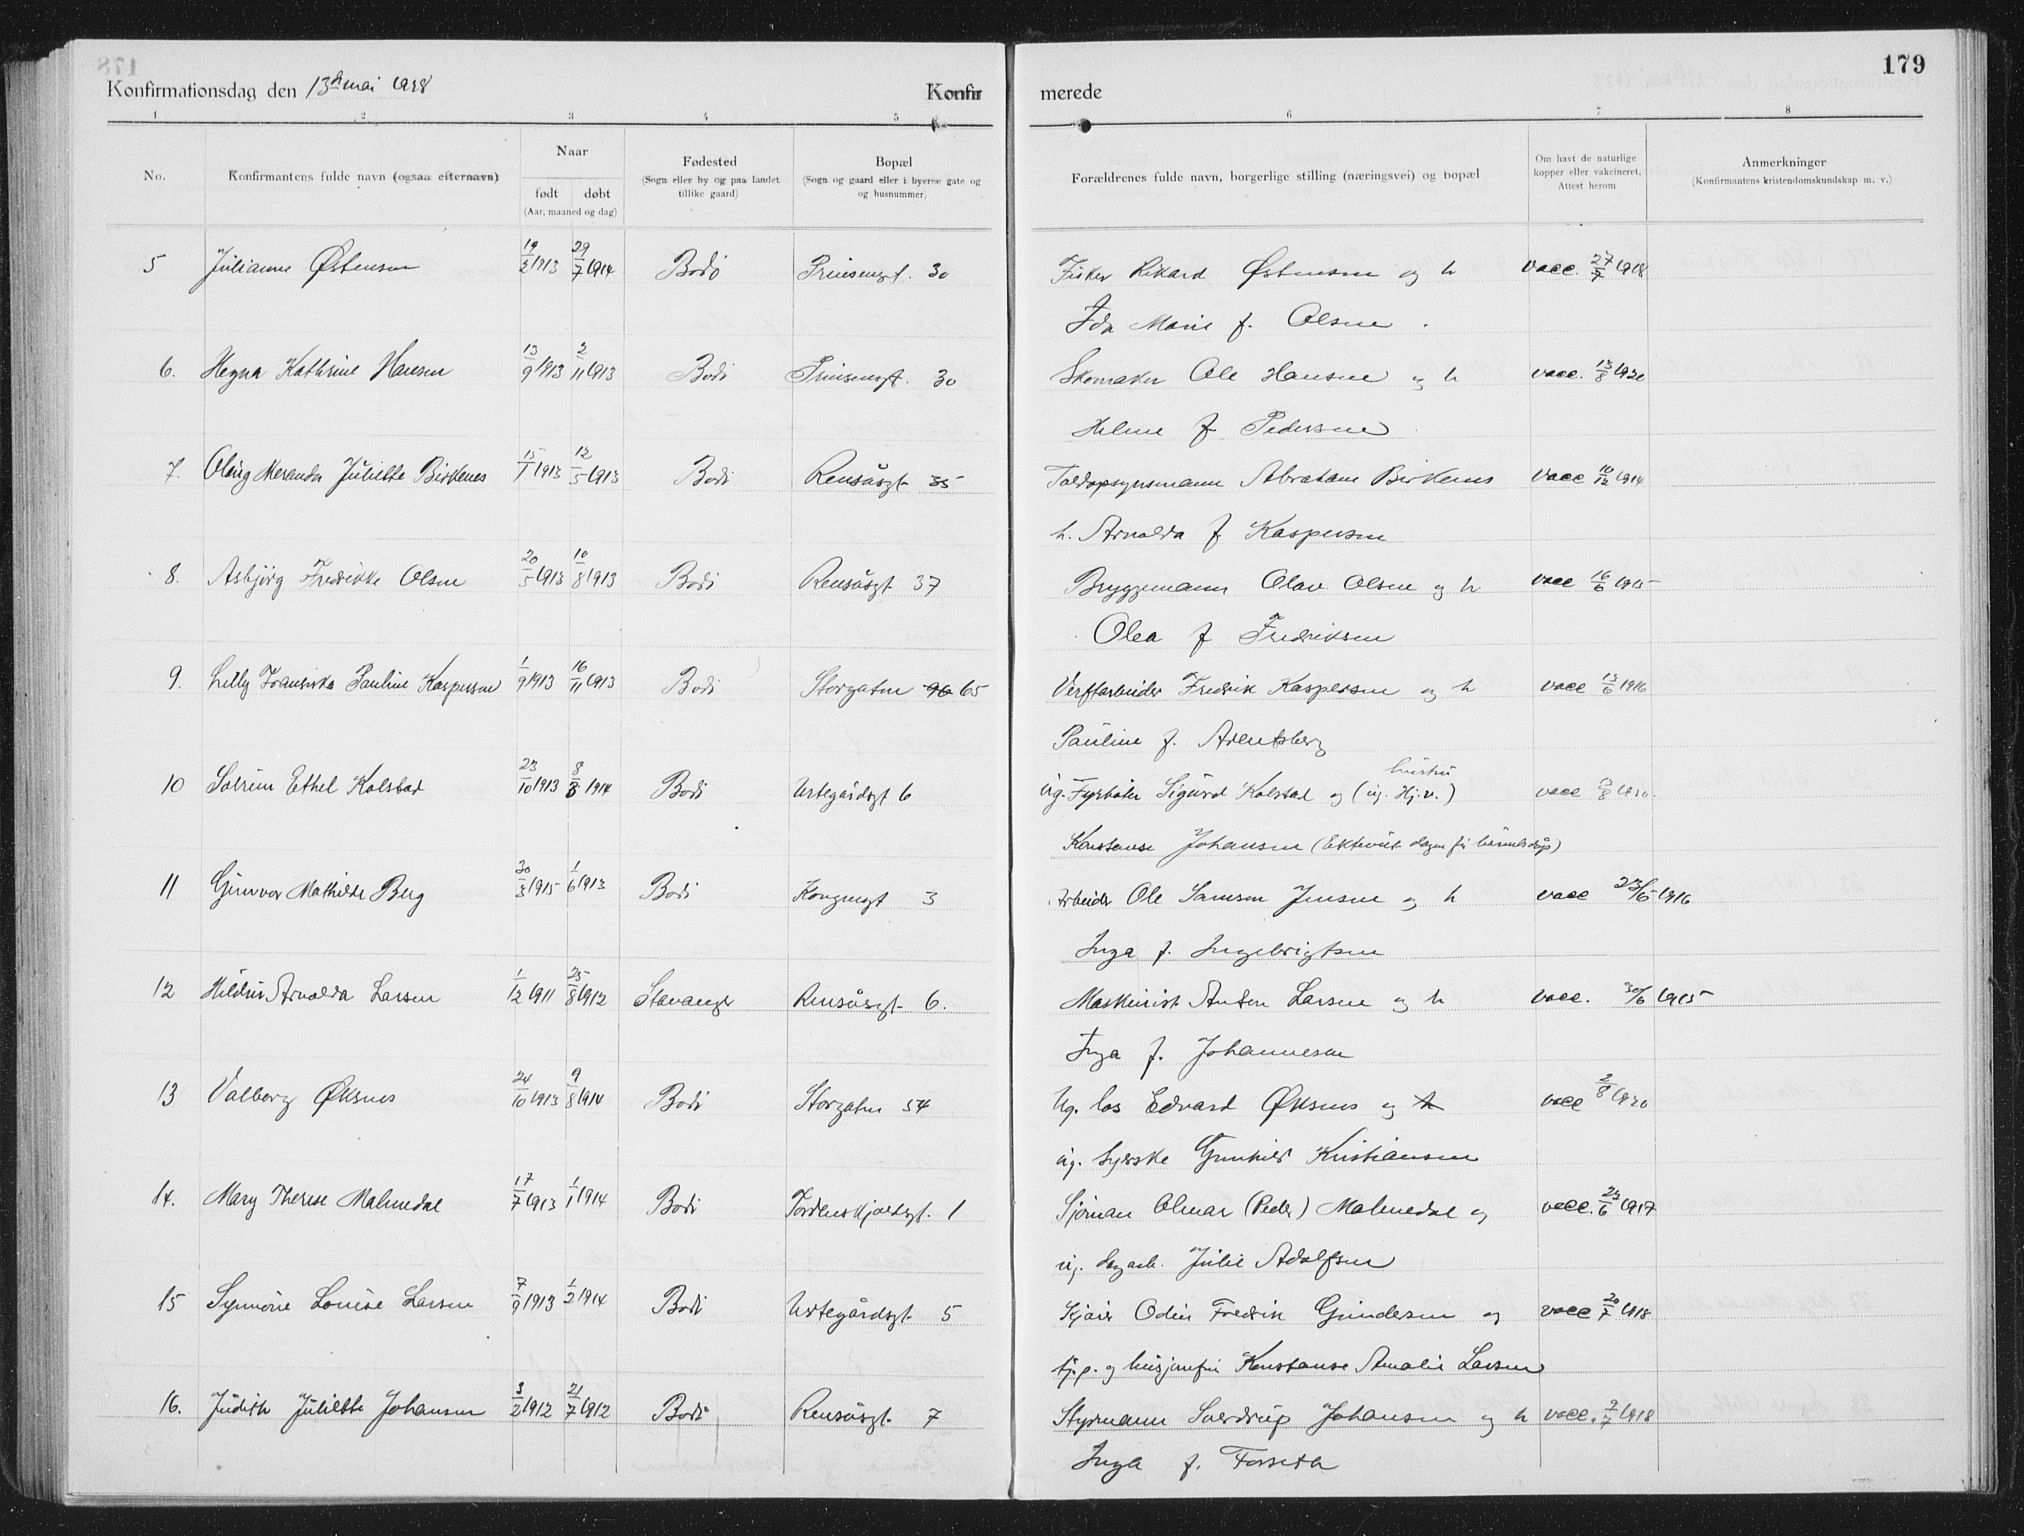 179
Konfirmationsdag den 13de mai 1928 Konfir merede
1 2 3 4 5 6 7 8
No. Konfirmantens fulde navn (ogsaa efternavn) Naar født døbt (Aar, maaned og dag) Fødested (Sogn eller by og paa landet tillike gaard) Bopæl (Sogn og gaard eller i byerne gate og og husnummer) Forældrenes fulde navn, borgerlige stilling (næringsvei) og bopæl Om havt de naturlige kopper eller vakcineret. Attest herom Anmerkninger (Konfirmantens kristendomskundskap m. v.)
5 Julianne Østensen 19/2 1913 29/7 1914 Bodø Prinsensgt. 30 Fisker Rikard Østensen og h vacc. 27/7 1918
Ida Marie f. Olsen.
6. Hegna Kathrine Hansen 13/9 1913 2/11 1913 Bodø Prinsensgt. 30 Skomaker Ole Hansen og h vacc. 13/8 1920
Helene f Pedersen
7. Olaug Meranda Juliette Birkenes 15/1 1913 12/5 1913 Bodø Rensåsgt 35 Toldopsynsmann Abraham Birkenes vacc 10/12 1914
h. Arnolda f Kaspersen
8. Asbjörg Fredrikke Olsen 20/5 1913 10/8 1913 Bodø Rensåsgt 37 Bryggemann Olav Olsen og h vacc 16/6 1915
Olea f Fredriksen
9. Lilly Fransiska Pauline Kaspersen 1/9 1913 16/11 1913 Bodø Storgaten 65 Verftarbeider Fredrik Kaspersen og h vacc 13/6 1916
Pauline f. Arentsberg
10 Solrun Ethel Kolstad 23/10 1913 8/3 1914 Bodø Urtegårdsgt 6 ug. Fyrbøter Sigurd Kolstad og (ug. Hj.v.) hustru vacc
Konstanse Johansen (Ekteviet dagen før barnets dåp)
11 Gunvor Mathilde Berg 30/3 1915 1/6 1913 Bodø Kongensgt 3 Arbeider Ole Samson Jensen og h vacc 23/6 1916
Inga f. Ingebrigtsen
12 Hildur Arnolda Larsen 1/12 1911 25/8 1912 Stavanger Rensåsgt 6. Maskinist Anton Larsen og h vacc. 30/6 1915
Inga f. Johannesen
13 Valborg Øksnes 24/10 1913 9/8 1914 Bodø Storgaten 54 Ug. los Edvard Øksnes og h vacc 2/8 1920
ug. Syerske Gunhild Kristiansen
14. Mary Therese Malmedal 17/7 1913 1/1 1914 Bodø Tordenskjoldsgt. 1 Sjömann Olmar (Peder) Malmedal og vacc. 23/6 1917
ug. Julie Adolfsen
15 Synnöve Louise Larsen 7/9 1913 1/2 1914 Bodø Urtegårdsgt 5 Kjörer Odin Fredrik Gundersen og vacc 20/7 1918
tj.p. og husjomfru Konstanse Amalie Larsen
16. Judith Juliette Johansen 3/2 1912 21/7 1912 Bodø Rensåsgt. 7 Styrmann Sverdrup Johansen og h vacc. 9/7 1918
Inga f. Forseth